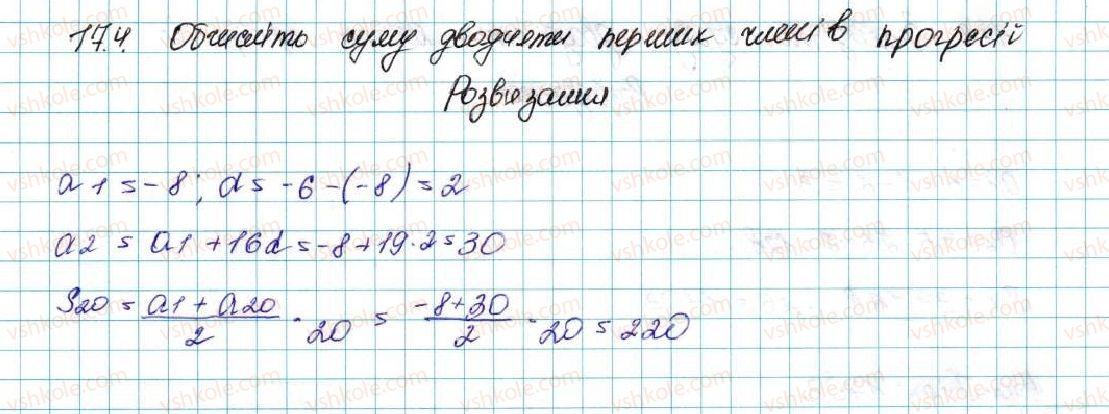 17.4 Обчисліть суму двадцяти перших членів прогресії
Розв'язання
a1 = -8; d = -6 - (-8) = 2
a2 = a1 + 16d = -8 + 19·2 = 30
S20 = (a1 + a20)/2 · 20 = (-8 + 30)/2 · 20 = 220